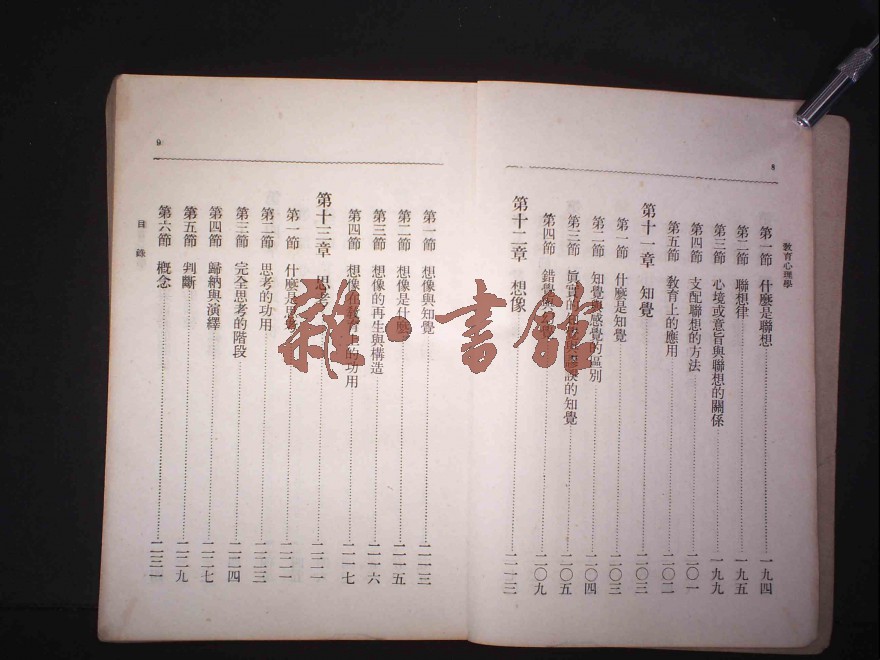 8
教育心理學
第一節 什麼是聯想 一九四
第二節 聯想律 一九五
第三節 心境或意旨與聯想的關係 一九九
第四節 支配聯想的方法 二〇一
第五節 教育上的應用 二〇二
第十一章 知覺 二〇三
第一節 什麼是知覺 二〇三
第二節 知覺與感覺的區別 二〇四
第三節 的知覺 二〇五
第四節 錯覺 二〇九
第十二章 想像 二一三
9
第一節 想像與知覺 二一三
第二節 想像是什麼 二一五
第三節 想像的再生與構造 二一六
第四節 想像在教育上的功用 二一七
第十三章 思考 二二一
第一節 什麼是思 二二一
第二節 思考的功用 二二三
第三節 完全思考的階段 二二四
第四節 歸納與演繹 二二七
第五節 判斷 二二九
第六節 概念 二三一
目錄
雜·書館